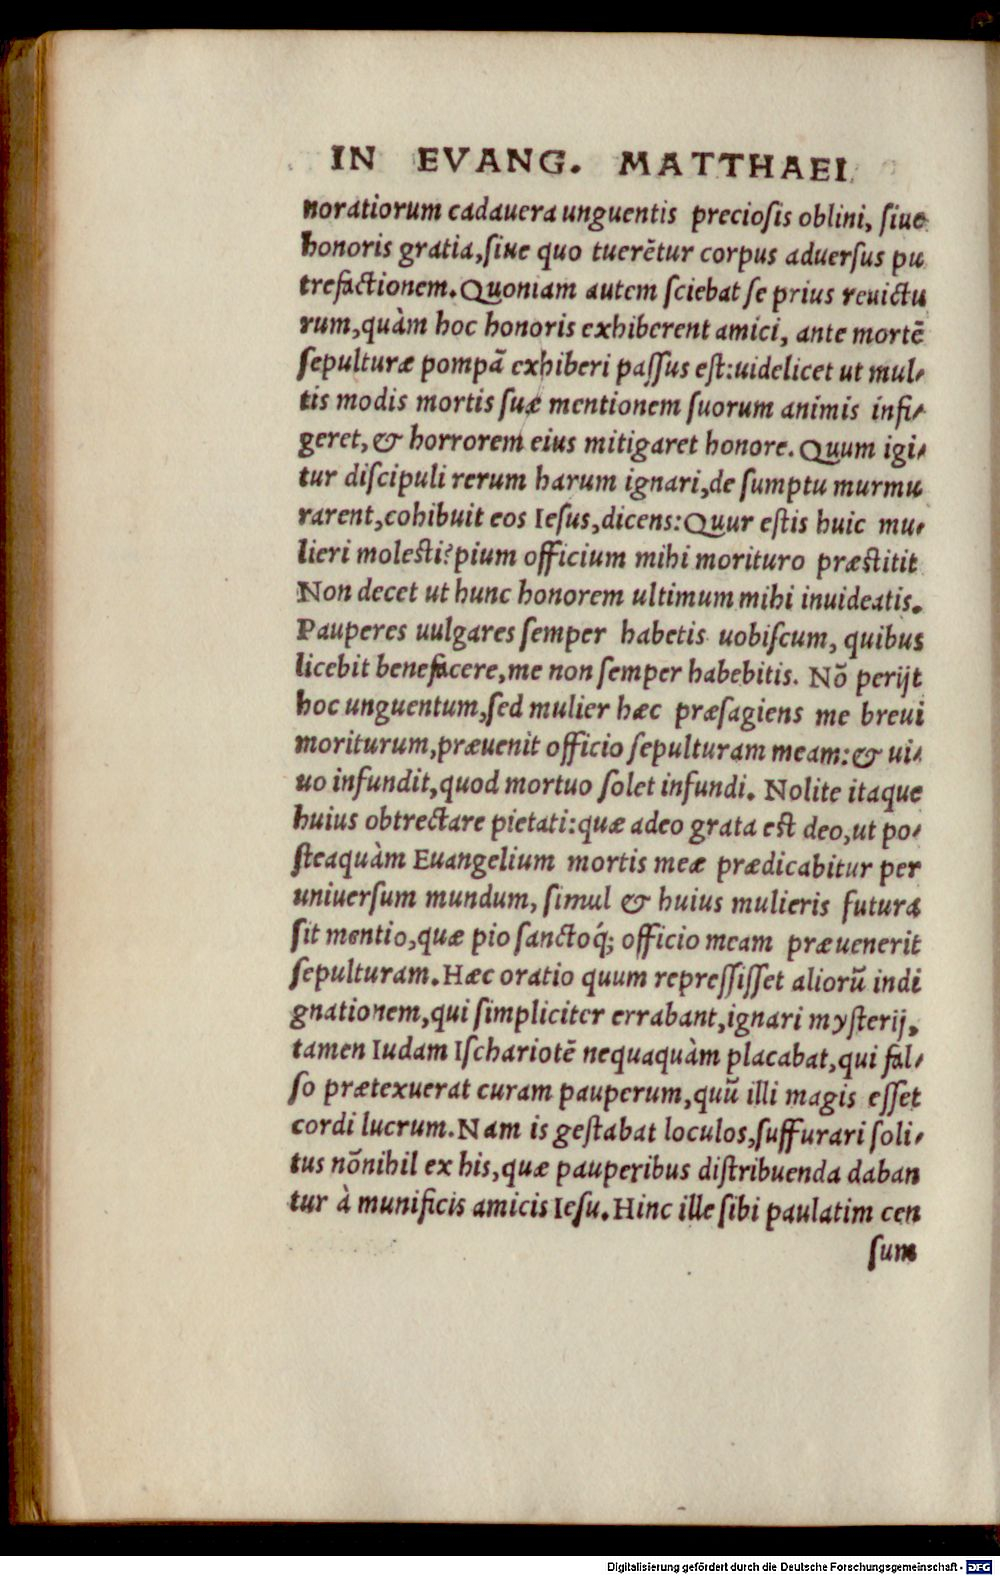 IN EVANG. MATTHAEI
noratiorum cadauera unguentis preciosis oblini, siue
honoris gratia, siue quo tuerētur corpus aduersus pu
trefactionem. Quoniam autem sciebat se prius reuictu
rum, quàm hoc honoris exhiberent amici, ante mortē
sepulturæ pompā exhiberi passus est: uidelicet ut mul-
tis modis mortis suæ mentionem suorum animis infi-
geret, & horrorem eius mitigaret honore. Quum igi-
tur discipuli rerum harum ignari, de sumptu murmu
rarent, cohibuit eos Iesus, dicens: Quur estis huic mu-
lieri molesti? pium officium mihi morituro præstitit
Non decet ut hunc honorem ultimum mihi inuideatis.
Pauperes uulgares semper habetis uobiscum, quibus
licebit benefacere, me non semper habebitis. Nō perijt
hoc unguentum, sed mulier hæc præsagiens me breui
moriturum, præuenit officio sepulturam meam: & ui-
uo infundit, quod mortuo solet infundi. Nolite itaque
huius obtrectare pietati: quæ adeo grata est deo, ut po-
steaquàm Euangelium mortis meæ prædicabitur per
uniuersum mundum, simul & huius mulieris futura
sit mentio, quæ pio sanctoq́; officio meam præuenerit
sepulturam. Hæc oratio quum repressisset aliorū indi
gnationem, qui simpliciter errabant, ignari mysterij,
tamen Iudam Ischariotē nequaquàm placabat, qui fal-
so prætexuerat curam pauperum, quū illi magis esset
cordi lucrum. Nam is gestabat loculos, suffurari soli-
tus nōnihil ex his, quæ pauperibus distribuenda daban
tur à munificis amicis Iesu. Hinc ille sibi paulatim cen
sum
Digitalisierung gefördert durch die Deutsche Forschungsgemeinschaft - DFG